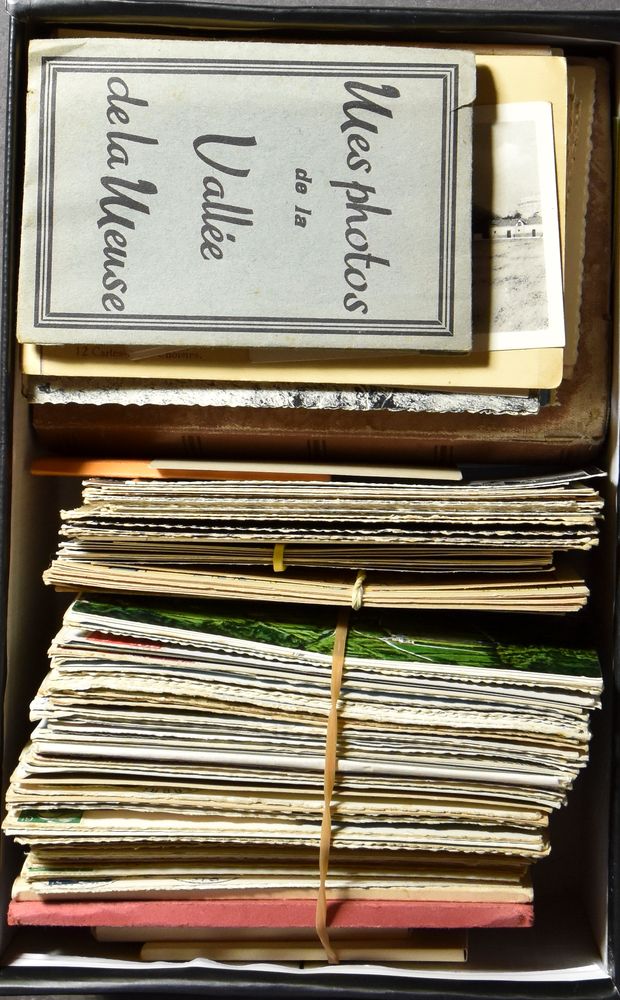 Mes photos
de la
Vallée
de la Meuse
12 Cartes